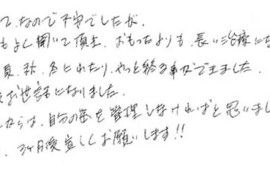 て、なので不安でしたが、
もよし聞いて頂き、おもったよりも、長い治療にな
夏、秋、冬にわたり、やっと終る事ができました。
お世話になりました。
からは、自分の歯を管理しなければと思いまし
、3ヶ月後宜しくお願いします!!